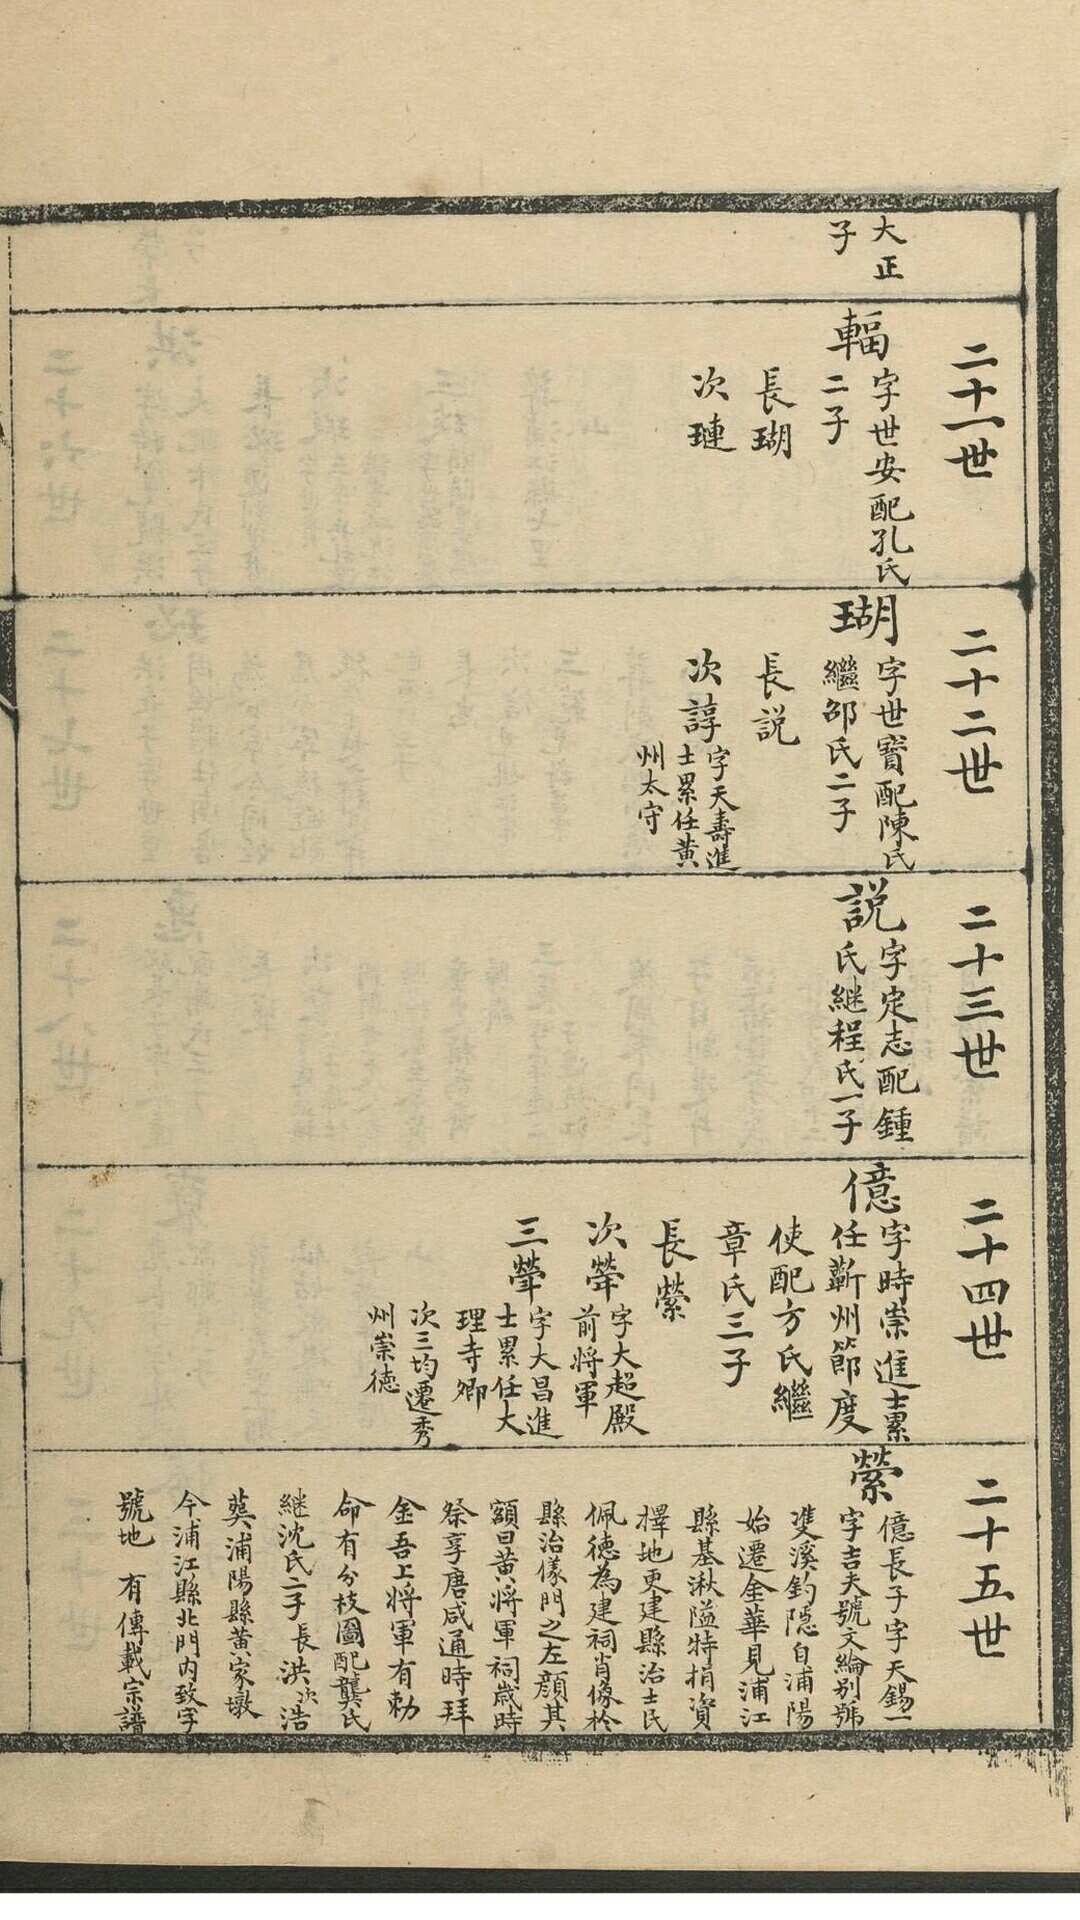 大正
子
二十一世
輻
字世安配孔氏
二子
長瑚
次璉
二十二世
瑚
字世寳配陳氏
繼邵氏二子
長説
次諄
字天壽進
士累任黄
州太守
二十三世
説
字定志配鍾
氏継程氏一子
二十四世
億
字時崇進士累
任蘄州節度
使配方氏繼
章氏三子
長縈
次犖
字大超殿
前將軍
三犖
字大昌進
士累任大
理寺卿
次三均遷秀
州崇徳
二十五世
縈
億長子字天錫一
字吉夫號文綸别號
䨇溪釣隠自浦陽
始遷金華見浦江
縣基湫隘特捐資
擇地更建縣治士民
佩徳為建祠肖像於
縣治儀門之左顔其
額曰黄將軍祠歳時
祭享唐咸通時拜
金吾上將軍有勅
命有分枝圖配龔氏
継沈氏二子長洪次浩
葬浦陽縣黄家墩
今浦江縣北門内致字
號地 有傳載宗譜